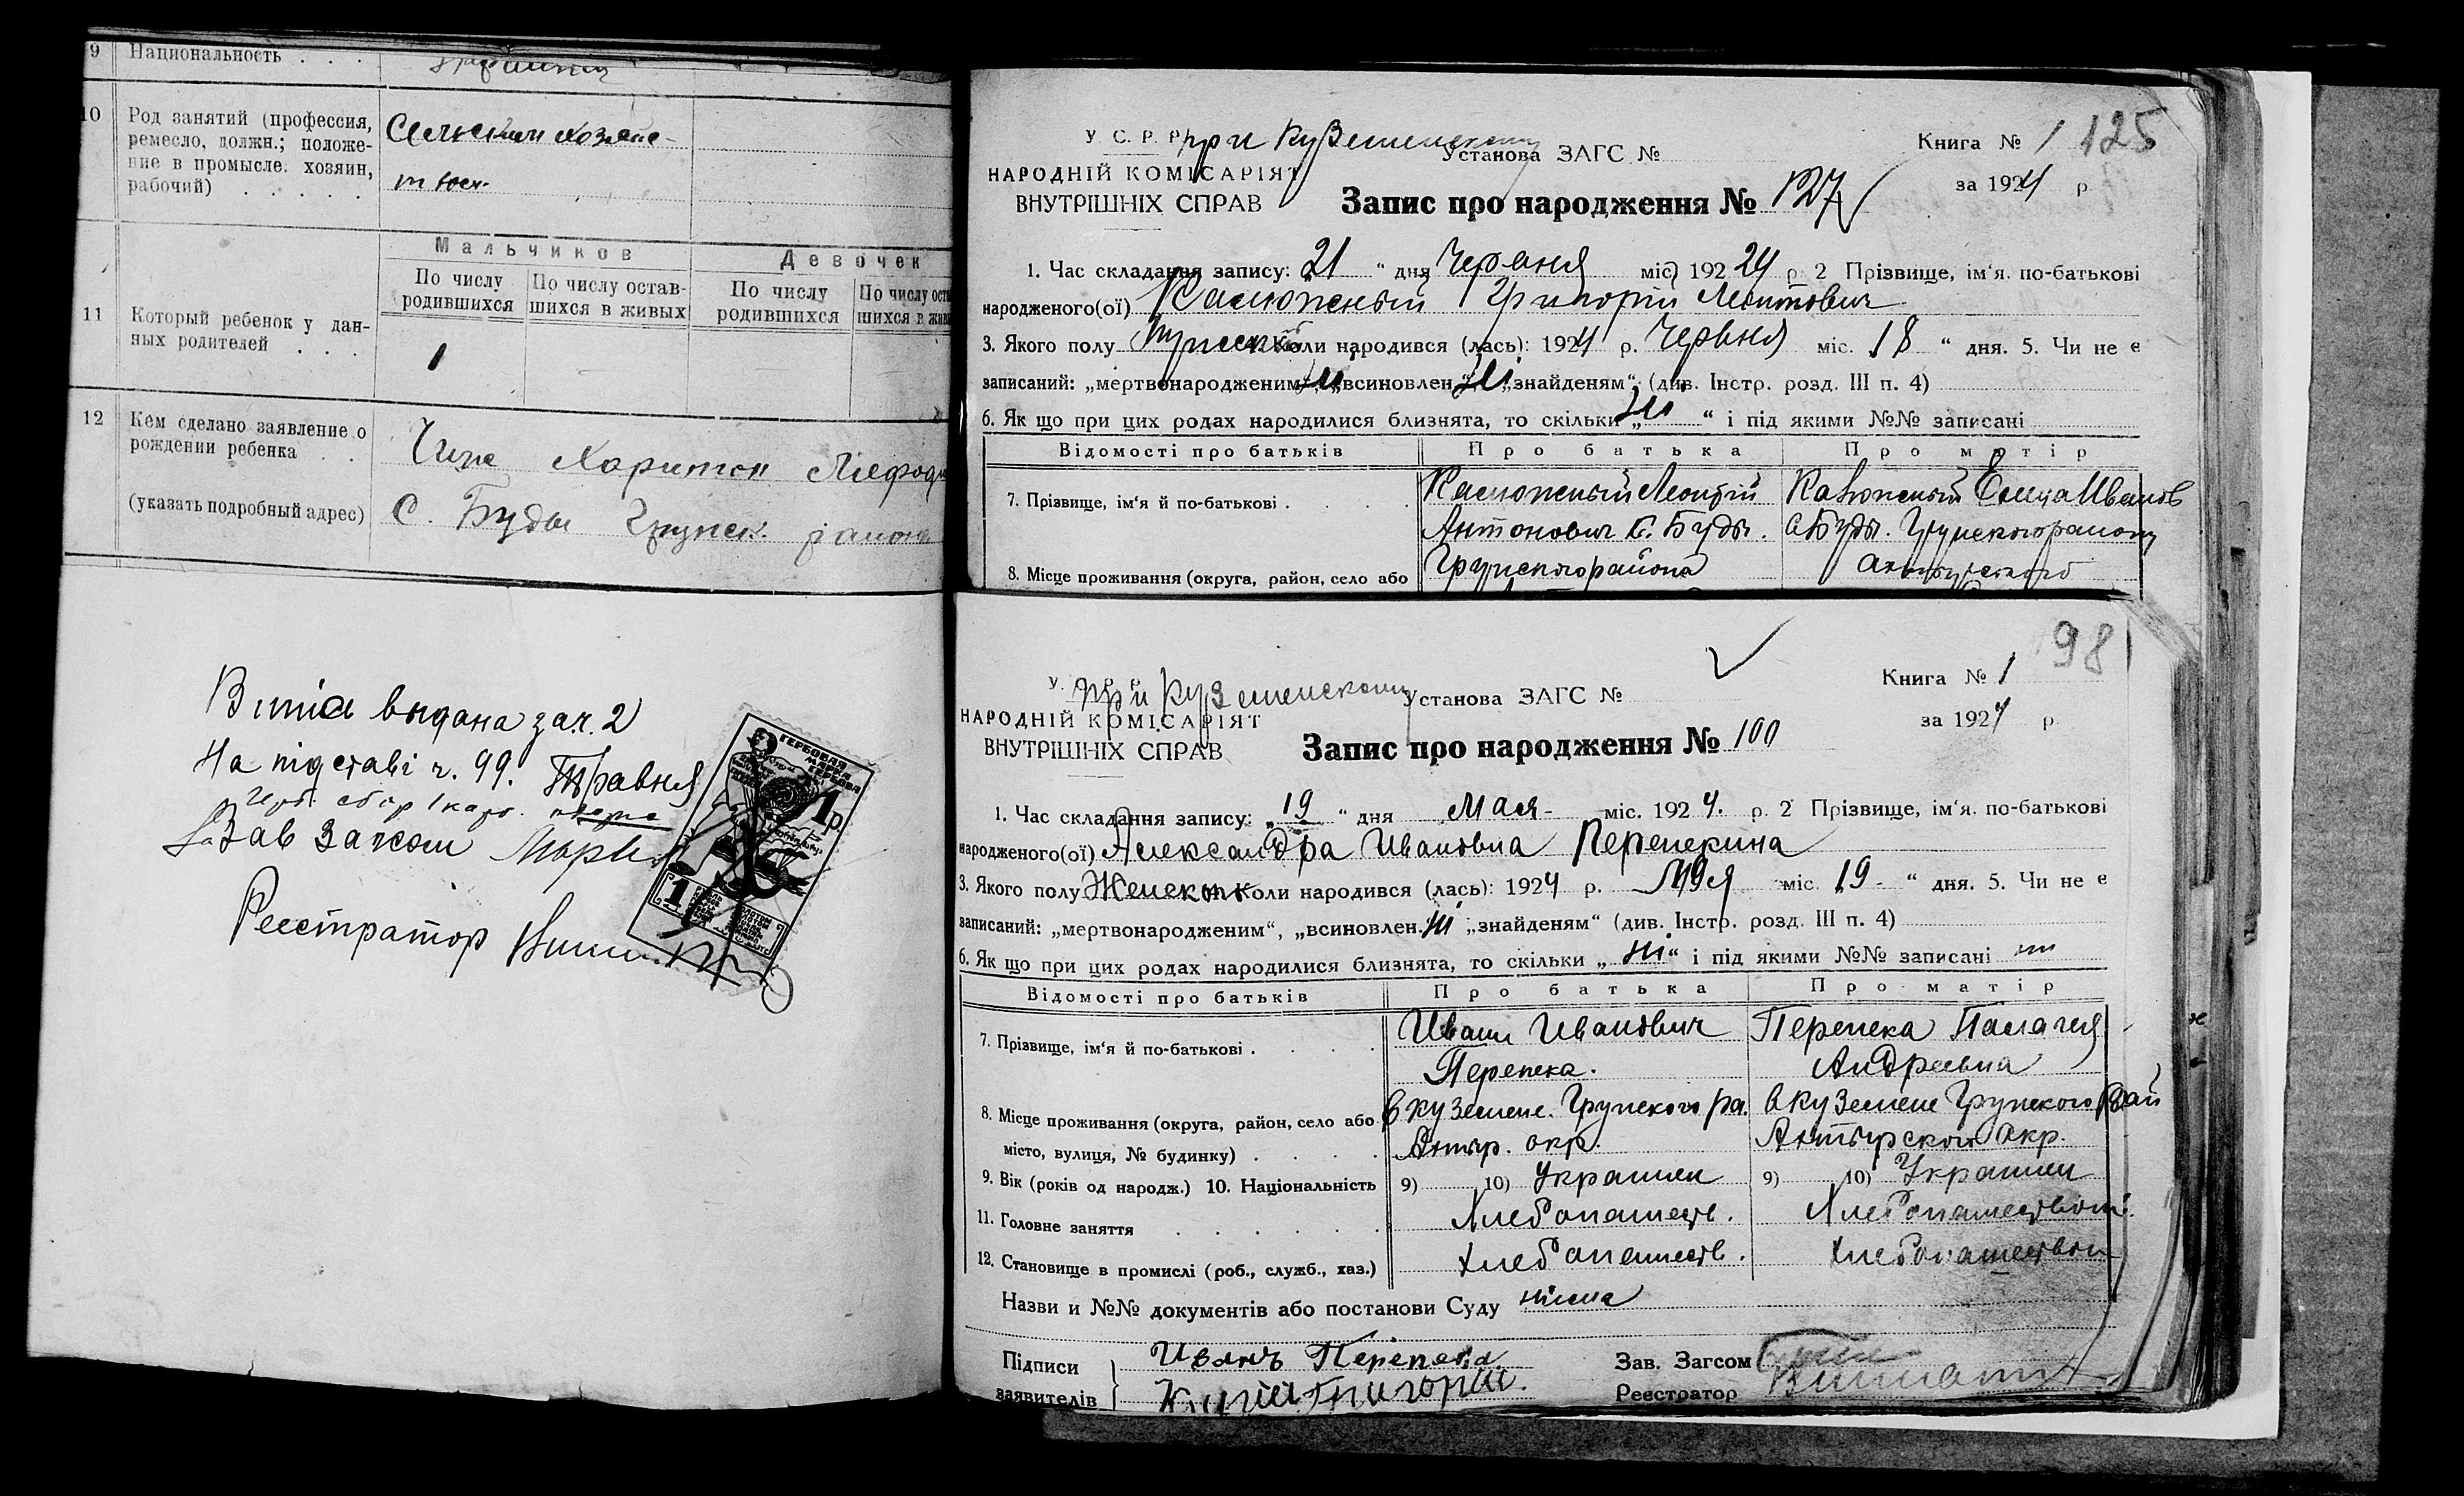 9 Национальность . . .
10 Род занятий (профессия, ремесло, должн.; положение в промысле. хозяин, рабочий) . . . . .
Сельским хозяйс-
твом.
11 Который ребенок у данных родителей . . .
Мальчиков
Девочек
По числу родившихся
По числу оставшихся в живых
По числу родившихся
По числу оста
шихся в жив
1
12 Кем сделано заявление о рождении ребенка . .
(указать подробный адрес)
Харитон Мефоди
С. Буды Грунск. района
Витіг выдана за ч. 2
На підставі ч. 99. Травня
Зав Загсом
Реєстратор
ГЕРБОВАЯ МАРКА
1 р.
1
У. С. Р. Р.
при Куземенскому
Установа ЗАГС №
Книга № 1
125
НАРОДНІЙ КОМІСАРІЯТ
ВНУТРІШНІХ СПРАВ
за 1924 р
Запис про народження № 127
1. Час складання запису: „21 “ дня Червня міс. 192 24 р. 2 Прізвище, ім‘я. по-батькові
народженого(ої) Калюжный Григорій Леонтович
3. Якого полу Мужеск 4. Коли народився (лась): 1924 р. Червня міс. 18 “ дня. 5. Чи не є
записаний: „мертвонародженим“, ні „всиновлен.“, ні „знайденям“ (див. Інстр. розд. III п. 4)
6. Як що при цих родах народилися близнята, то скільки „ ні “ і під якими №№ записані
Відомості про батьків
Про батька
Про матір
7. Прізвище, ім‘я й по-батькові . . . .
Калюжный Леонтій
Антонович С. Буды.
Калюжный Елена Иванов
С Буды. Грунского району
8. Місце проживання (округа, район, село або
Грунского района
98
У.
при Куземенскому
Установа ЗАГС №
Книга № 1
НАРОДНІЙ КОМІСАРІЯТ
ВНУТРІШНІХ СПРАВ
за 1924 р
Запис про народження № 100
1. Час складання запису: „19 “ дня Мая - міс. 1924. р. 2 Прізвище, ім‘я. по-батькові
народженого(ої) Александра Ивановна Перепекина
3. Якого полу Женск 4. Коли народився (лась): 1924 р. Мая міс 19 - “ дня. 5. Чи не є
записаний: „мертвонародженим“, „всиновлен. ні „знайденям“ (див. Інстр. розд. III п. 4)
6. Як що при цих родах народилися близнята, то скільки „ ні “ і під якими №№ записані ні
Відомості про батьків
Про батька
Про матір
7. Прізвище, ім‘я й по-батькові . . . .
Иван Иванович
Перепека.
Перепека Палагея
Андреевна
8. Місце проживання (округа, район, село або місто, вулиця, № будинку) . . . .
в Куземене. Грунского ра.
Ахтыр. окр.
в Куземене Грунского рай
Ахтырского Окр.
9. Вік (років од народж.) 10. Національність
9) 10) Украинец
9) 10) Украинец
11. Головне заняття . . . . .
Хлебопашеств.
Хлебопашеством
12. Становище в промислі (роб., служб., хаз.)
Хлебопашеств.
Хлебопашеством
Назви и №№ документів або постанови Суду нема
Підписи заявителів
Иванъ Перепека.
Зав. Загсом
Реєстратор